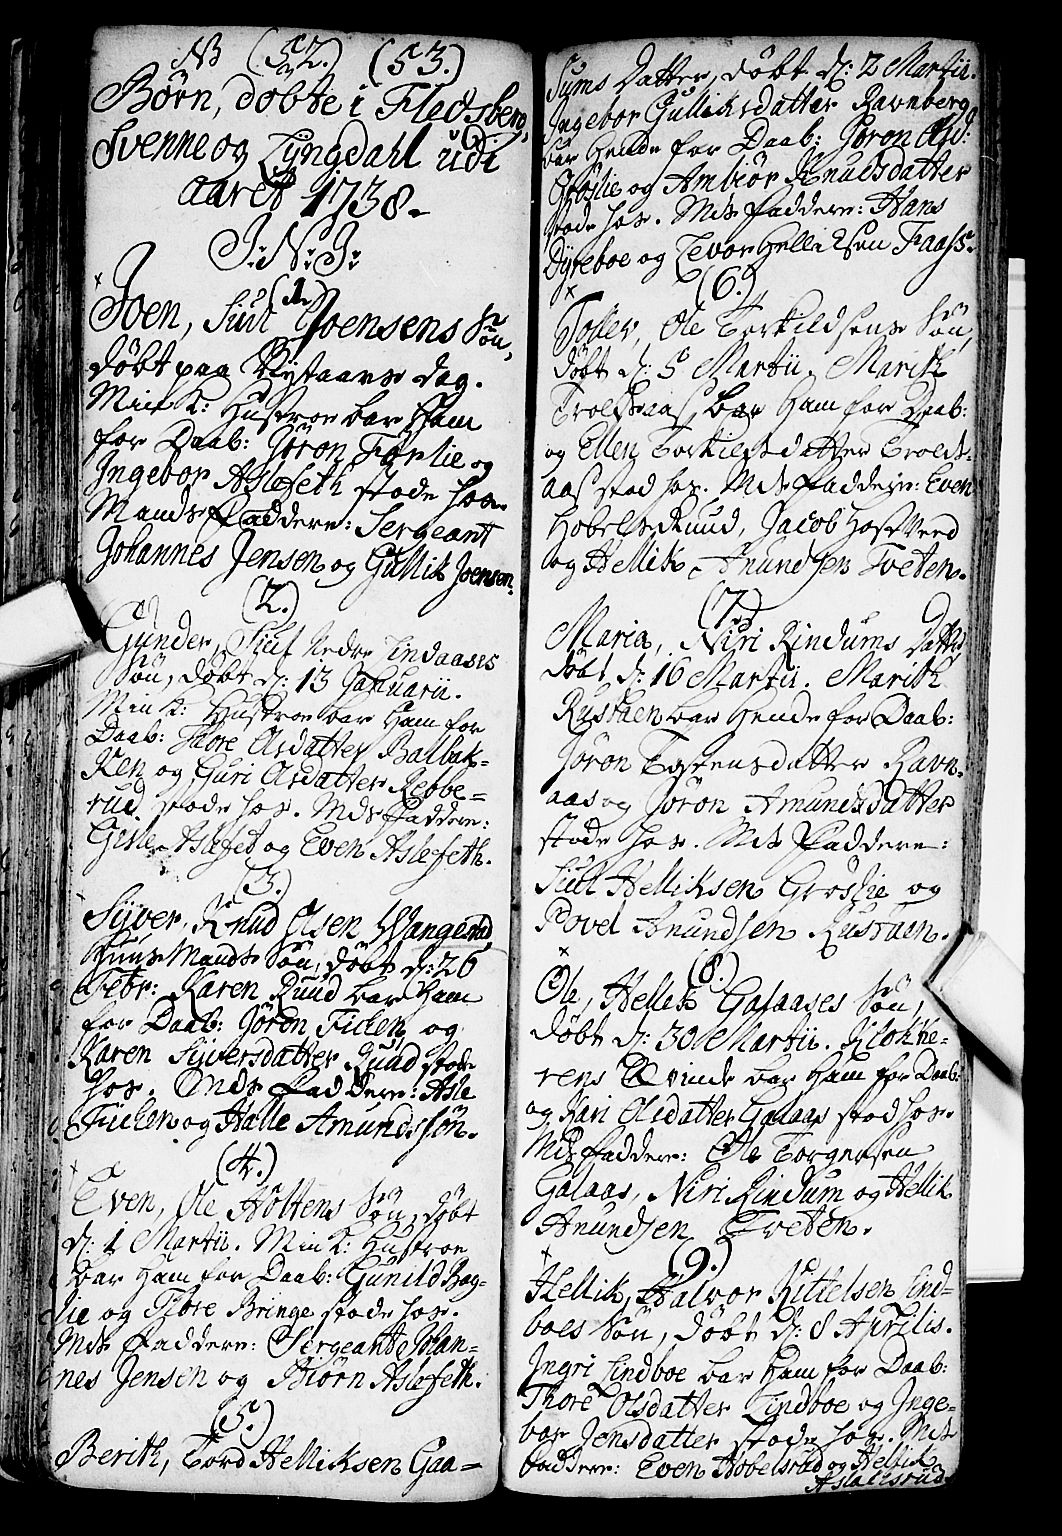 NB (52.) (53.)
Børn, døbte i Fledsberg,
Svenne og Lyngdahl udi
aaret 1738.
J: N: J:
(1.)
Joen, Siul Joensens Søn,
døbt paa Nytaars dag.
Min K: Hustroe bar Ham
for Daab: Jøron Førlie og
Ingebor Aslefeth stode hos.
Mands Faddere: Sergeant
Johannes Jensen og Gullik Joensen.
(2.)
Gunder, Siul Nedre Lindaases
Søn, døbt d: 13 Januarii.
Min K: Hustroe bar Ham for
Daab: Thore Olsdatter Balbak-
ken og Guri Olsdatter Rebbe=
rud stode hos. Mds Faddere:
Gisle Aslefet og Even Aslefeth.
(3.)
Syver, Knud Olsen Wangestad
Huus Mands Søn, døbt d: 26
Febr: Karen Ruud bar Ham
for Daab: Jøron Ficken og
Karen Syversdatter Ruud stode
hos. Mds Faddere: Asle
Ficken og Halle Amundssøn.
(4.)
Even, Ole Holtens Søn, døbt
d: 1 Martii. Min K: Hustroe
bar Ham for Daab: Gunild Bag-
lie og Thore Bringe stode hos.
Mds Faddere: Sergeant Johan=
nes Jensen og Biørn Aslefeth.
(5.)
Berith, Tord Helliksen Gaa=
sums Datter, døbt d: 2 Martii.
Ingebor Gulliksdatter Ravnberg
bar Hende for Daab: Jøron
Groslie og Ambiør Knudsdatter
stode hos. Mds Faddere: Hans
Dyreboe og Tevor Helliksen Faass.
(6.)
Tollev, Ole Torkildsens Søn,
døbt d: 5 Martii. Marith
Troldsaas bar Ham for Daab:
og Ellen Torkilsdatter Trolds-
aas stod hos. Mds Faddere: Even
Hobelsruud, Jacob Hostveed
og Hellik Anundsen Tveten.
(7.)
Maria, Niri Rindums Datter
døbt d: 16 Martii. Marith
Rustaen bar Hende for Daab:
Jøron Tostensdatter Ravn-
aas og Jøron Amundsdatter
stode hos. Mds Faddere:
Siul Helliksen Groslie og
Povel Anundsen Rustaen.
(8.)
Ole, Hellik Galaases Søn,
døbt d: 30 Martii. Klokke=
rens Qvinde bar Ham for Daab:
og Kari Olsdatter Galaas stod hos.
Mds Faddere: Ole Torgersen
Galaas, Niri Rindum og Hellik
Anundsen Tveten.
(9.)
Hellik, Halvor Kittelsen Lind=
boes Søn, døbt d: 8 Aprilis.
Ingri Lindboe bar Ham for Daab:
Thore Olsdatter Lindboe og Inge=
bor Jensdatter stode hos. Mds
Faddere: Even Hobelsrud og Hellik
Aslaksrud